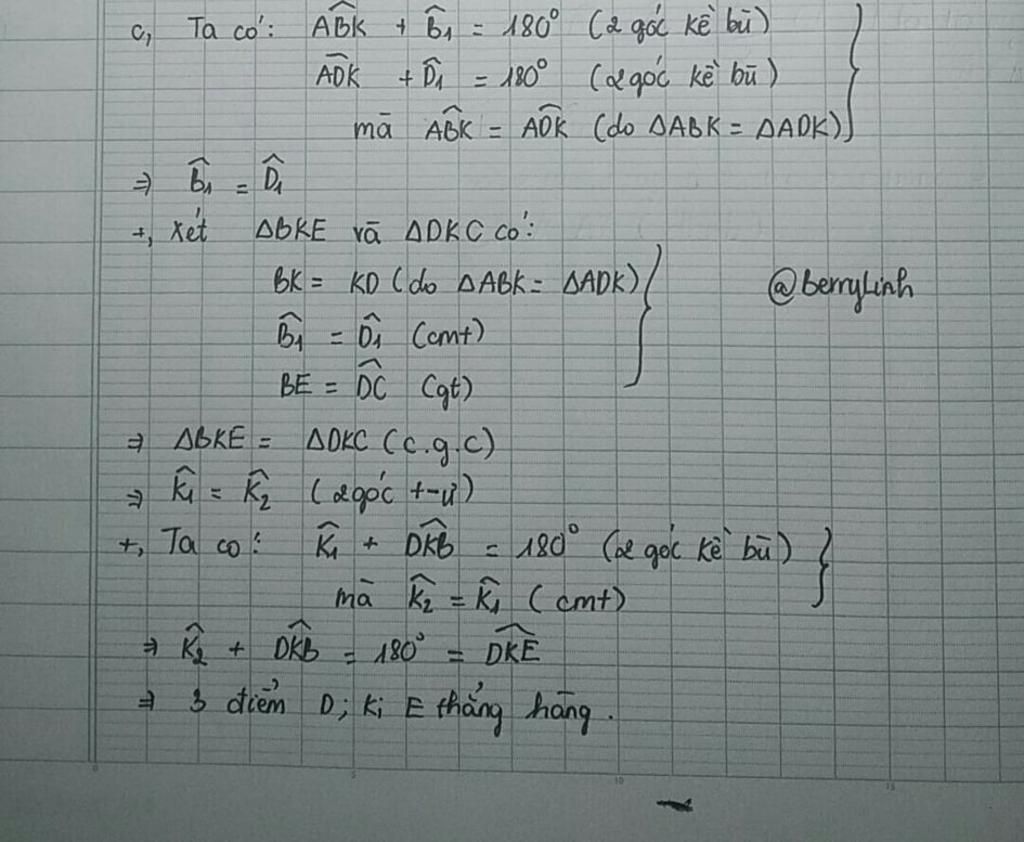 c, Ta có: ABK̂ + B̂₁ = 180° (2 góc kề bù)
ADK̂ + D̂₁ = 180° (2 góc kề bù)
mà ABK̂ = ADK̂ (do ΔABK = ΔADK)
⇒ B̂₁ = D̂₁
+, Xét ΔBKE và ΔDKC có:
BK = KD (do ΔABK = ΔADK)
@BerryLinh
B̂₁ = D̂₁ (cmt)
BE = DĈ (gt)
⇒ ΔBKE = ΔDKC (c.g.c)
⇒ K̂₁ = K̂₂ (2 góc t-ư)
+, Ta có: K̂₁ + DKB̂ = 180° (2 góc kề bù)
mà K̂₂ = K̂₁ (cmt)
⇒ K̂₂ + DKB̂ = 180° = DKÊ
⇒ 3 điểm D; K; E thẳng hàng.
5 10 15